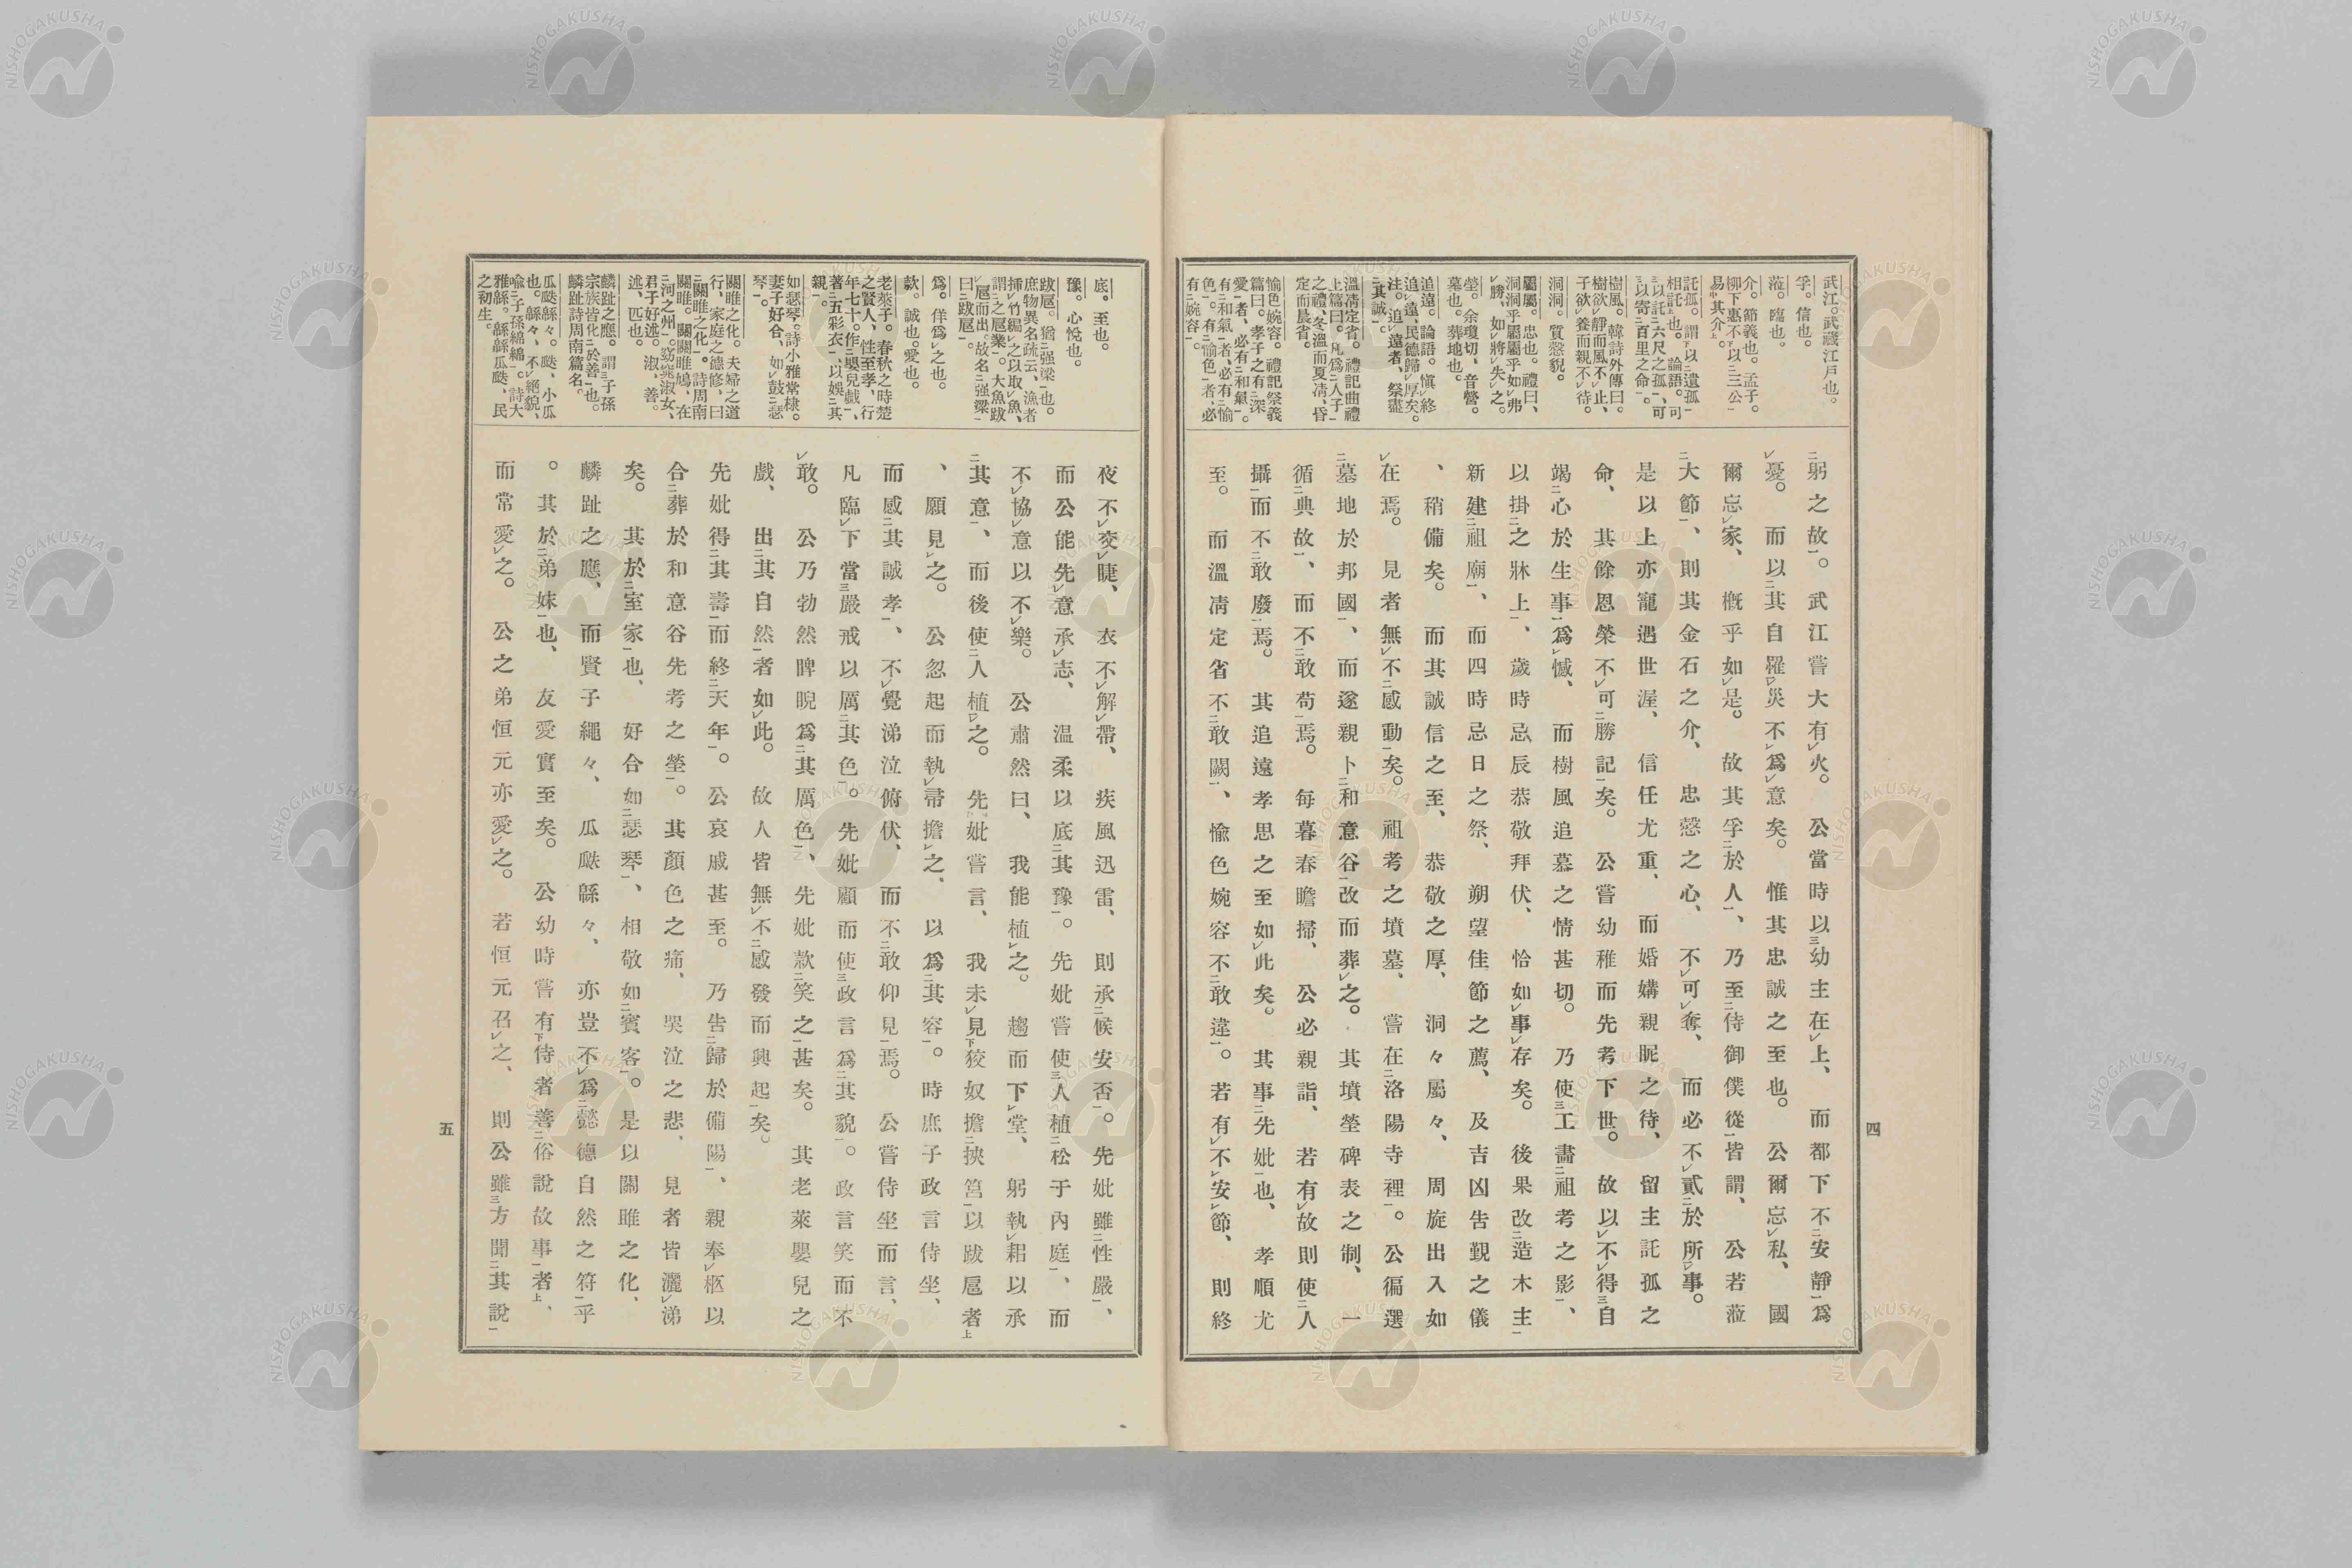 武江。武藏江戸也。
孚。信也。
蒞。臨也。
介。節義也。孟子。
柳下惠不以三公
易其介。
託孤。謂以遺孤
相託也。論語。可
以託六尺之孤、可
以寄百里之命。
樹風。韓詩外傳曰。
樹欲靜而風不止、
子欲養而親不待。
洞洞。質愨貌。
屬屬。忠也。禮曰、
洞洞乎屬屬乎如弗
勝、如將失之。
塋。余瓊切、音營。
墓也。葬地也。
追遠。論語。愼終
追遠、民德歸厚矣。
注。追遠者、祭盡
其誠。
溫凊定省。禮記曲禮
上篇曰。凡爲人子
之禮、冬溫而夏凊、昏
定而晨省。
愉色婉容。禮記祭義
篇曰。孝子之有深
愛者、必有和氣。
有和氣者、必有愉
色。有愉色者、必
有婉容。
躬之故。武江嘗大有火。公當時以幼主在上、而都下不安靜爲
憂。而以其自罹災不爲意矣。惟其忠誠之至也。公爾忘私、國
爾忘家、概乎如是。故其孚於人、乃至侍御僕從皆謂、公若蒞
大節、則其金石之介、忠愨之心、不可奪、而必不貳於所事。
是以上亦寵遇世渥、信任尤重、而婚媾親昵之待、留主託孤之
命、其餘恩榮不可勝記矣。公嘗幼稚而先考下世。故以不得自
竭心於生事爲憾、而樹風追慕之情甚切。乃使工畫祖考之影、
以掛之牀上、歲時忌辰恭敬拜伏、恰如事存矣。後果改造木主
新建祖廟、而四時忌日之祭、朔望佳節之薦、及吉凶告覲之儀
、稍備矣。而其誠信之至、恭敬之厚、洞々屬々、周旋出入如
在焉。見者無不感動矣。祖考之墳墓、嘗在洛陽寺裡。公徧選
墓地於邦國、而遂親卜和意谷改而葬之。其墳塋碑表之制、一
循典故、而不敢苟焉。每暮春瞻掃、公必親詣、若有故則使人
攝而不敢廢焉。其追遠孝思之至如此矣。其事先妣也、孝順尤
至。而溫凊定省不敢闕、愉色婉容不敢違。若有不安節、則終
四
底。至也。
豫。心悅也。
跋扈。猶强梁也。
庶物異名疏云、漁者
揷竹編之以取魚、
謂之扈業。大魚跋
扈而出。故名强梁
曰跋扈。
爲。佯爲之也。
款。誠也。愛也。
老萊子。春秋之時楚
之賢人、性至孝、行
年七十。作嬰兒戲、
著五彩衣、以娛其
親。
如瑟琴。詩小雅常棣。
妻子好合、如鼓瑟
琴。
關雎之化。夫婦之道
行、家庭之德修、曰
關雎之化。詩周南
關雎。關關雎鳩、在
河之州。窈窕淑女、
君子好逑。淑、善。
逑、匹也。
麟趾之應。謂子孫
宗族皆化於善也。
麟趾詩周南篇名。
瓜瓞緜々。瓞、小瓜
也。緜々、不絕貌、
喩子孫綿綿。詩大
雅緜。緜緜瓜瓞、民
之初生。
夜不交睫、衣不解帶、疾風迅雷、則承候安否。先妣雖性嚴、
而公能先意承志、溫柔以底其豫。先妣嘗使人植松于內庭、而
不協意以不樂。公肅然曰、我能植之。趨而下堂、躬執耜以承
其意、而後使人植之。先妣嘗言、我未見狡奴擔挾筥以跋扈者
、願見之。公忽起而執帚擔之、以爲其容。時庶子政言侍坐、
而感其誠孝、不覺涕泣俯伏、而不敢仰見焉。公嘗侍坐而言、
凡臨下當嚴戒以厲其色。先妣顧而使政言爲其貌。政言笑而不
敢。公乃勃然睥睨爲其厲色、先妣款笑之甚矣。其老萊嬰兒之
戲、出其自然者如此。故人皆無不感發而興起矣。
先妣得其壽而終天年。公哀戚甚至。乃告歸於備陽、親奉柩以
合葬於和意谷先考之塋。其顏色之痛、哭泣之悲、見者皆灑涕
矣。其於室家也、好合如瑟琴、相敬如賓客。是以關雎之化、
麟趾之應、而賢子繩々、瓜瓞緜々、亦豈不爲懿德自然之符乎
。其於弟妹也、友愛實至矣。公幼時嘗有侍者善俗說故事者、
而常愛之。公之弟恒元亦愛之。若恒元召之、則公雖方聞其說
五
NISHOGAKUSHA